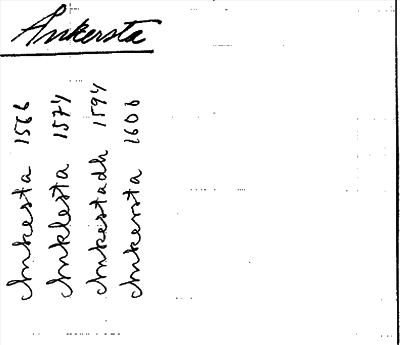 Ankersta
Ankesta 1566
Anklesta 1574
Ankestadh 1594
Ankersta 1606